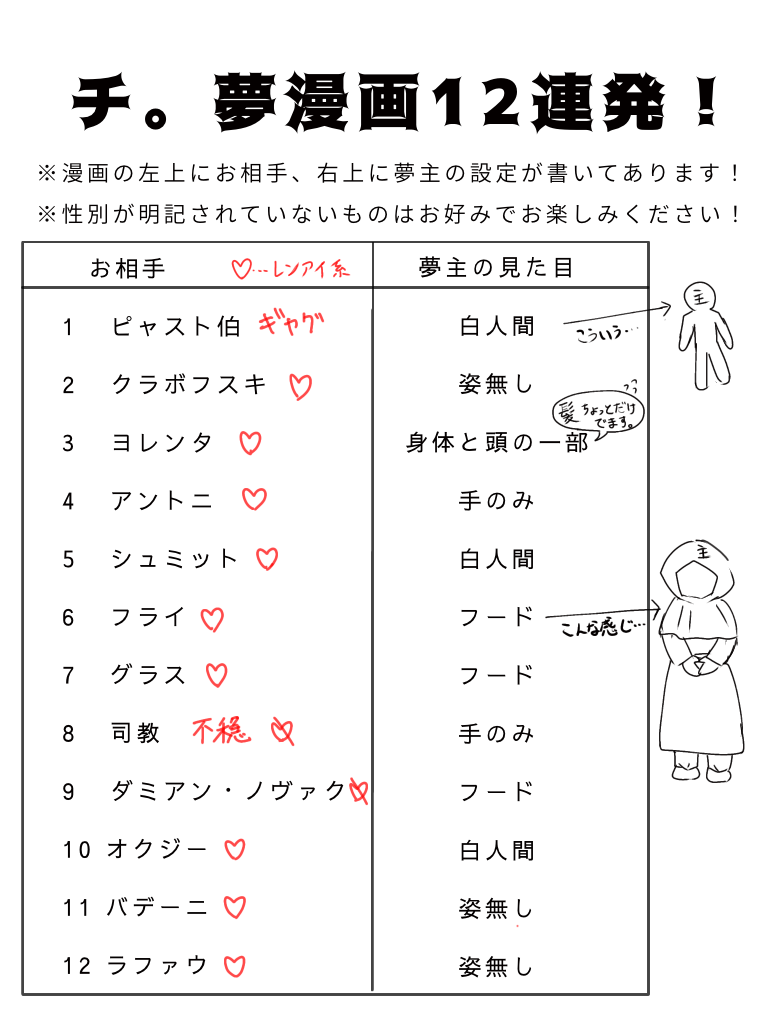 チ。夢漫画12連発！
※漫画の左上にお相手、右上に夢主の設定が書いてあります！
※性別が明記されていないものはお好みでお楽しみください！
お相手 ♡…レンアイ系 夢主の見た目
1 ピャスト伯 ギャグ 白人間
こういう…
主
2 クラボフスキ ♡ 姿無し
髪ちょっとだけ
でます。
3 ヨレンタ ♡ 身体と頭の一部
4 アントニ ♡ 手のみ
5 シュミット ♡ 白人間
主
6 フライ ♡ フード
こんな感じ…
7 グラス ♡ フード
8 司教 不穏 手のみ
9 ダミアン・ノヴァク フード
10 オクジー ♡ 白人間
11 バデーニ ♡ 姿無し
12 ラファウ ♡ 姿無し